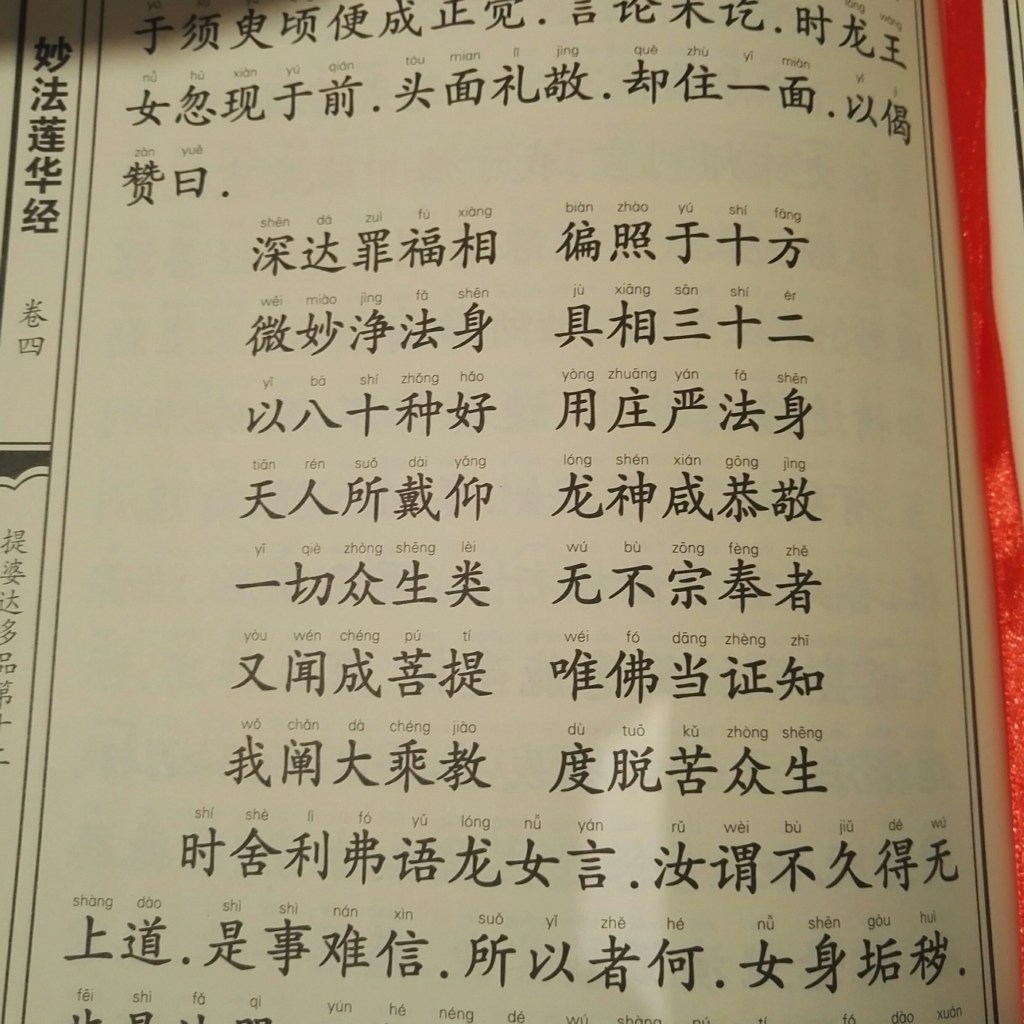 妙法莲华经
卷四
提婆达多品第十二
于须臾顷便成正觉.言论未讫.时龙王
nǚ hū xiàn yú qián tóu miàn lǐ jìng què zhù yī miàn yǐ
女忽现于前.头面礼敬.却住一面.以偈
zàn yuē
赞曰.
shēn dá zuì fú xiàng biàn zhào yú shí fāng
深达罪福相 徧照于十方
wēi miào jìng fǎ shēn jù xiāng sān shí èr
微妙净法身 具相三十二
yǐ bā shí zhǒng hǎo yòng zhuāng yán fǎ shēn
以八十种好 用庄严法身
tiān rén suǒ dài yǎng lóng shén xián gōng jìng
天人所戴仰 龙神咸恭敬
yī qiè zhòng shēng lèi wú bù zōng fèng zhě
一切众生类 无不宗奉者
yòu wén chéng pú tí wéi fó dāng zhèng zhī
又闻成菩提 唯佛当证知
wǒ chǎn dà chéng jiào dù tuō kǔ zhòng shēng
我阐大乘教 度脱苦众生
shí shè lì fó yǔ lóng nǚ yán rǔ wèi bù jiǔ dé wú
时舍利弗语龙女言.汝谓不久得无
shàng dào shì shì nán xìn suǒ yǐ zhě hé nǚ shēn gòu huì
上道.是事难信.所以者何.女身垢秽.
fēi shì fǎ qì yún hé néng dé wú shàng pú tí fó dào xuán